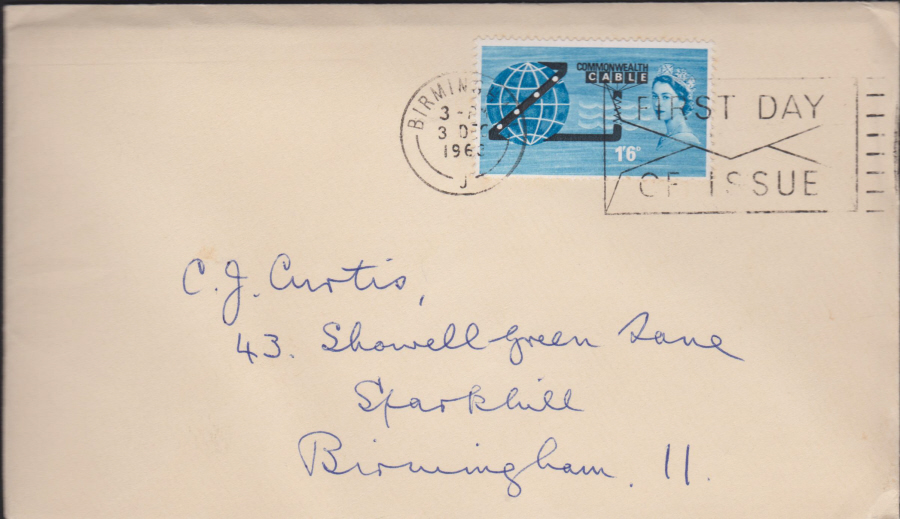 COMMONWEALTH
CABLE
1'6ᴰ
BIRMING
3 DEC
1963
J
FIRST DAY
OF ISSUE
C. J. Curtis,
43. Showell Green Lane
Sparkhill
Birmingham. 11.